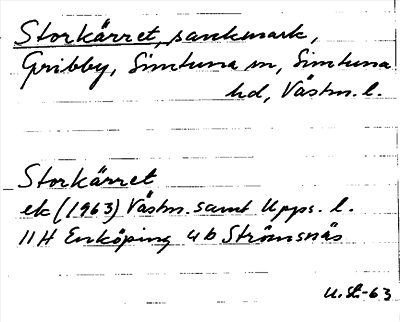 Storkärret, sankmark,
Gribby, Simtuna sn, Simtuna
hd, Västm. l.
Storkärret
ek (1963) Västm. samt Upps. l.
11H Enköping 4b Strömsnäs
U.St.-63